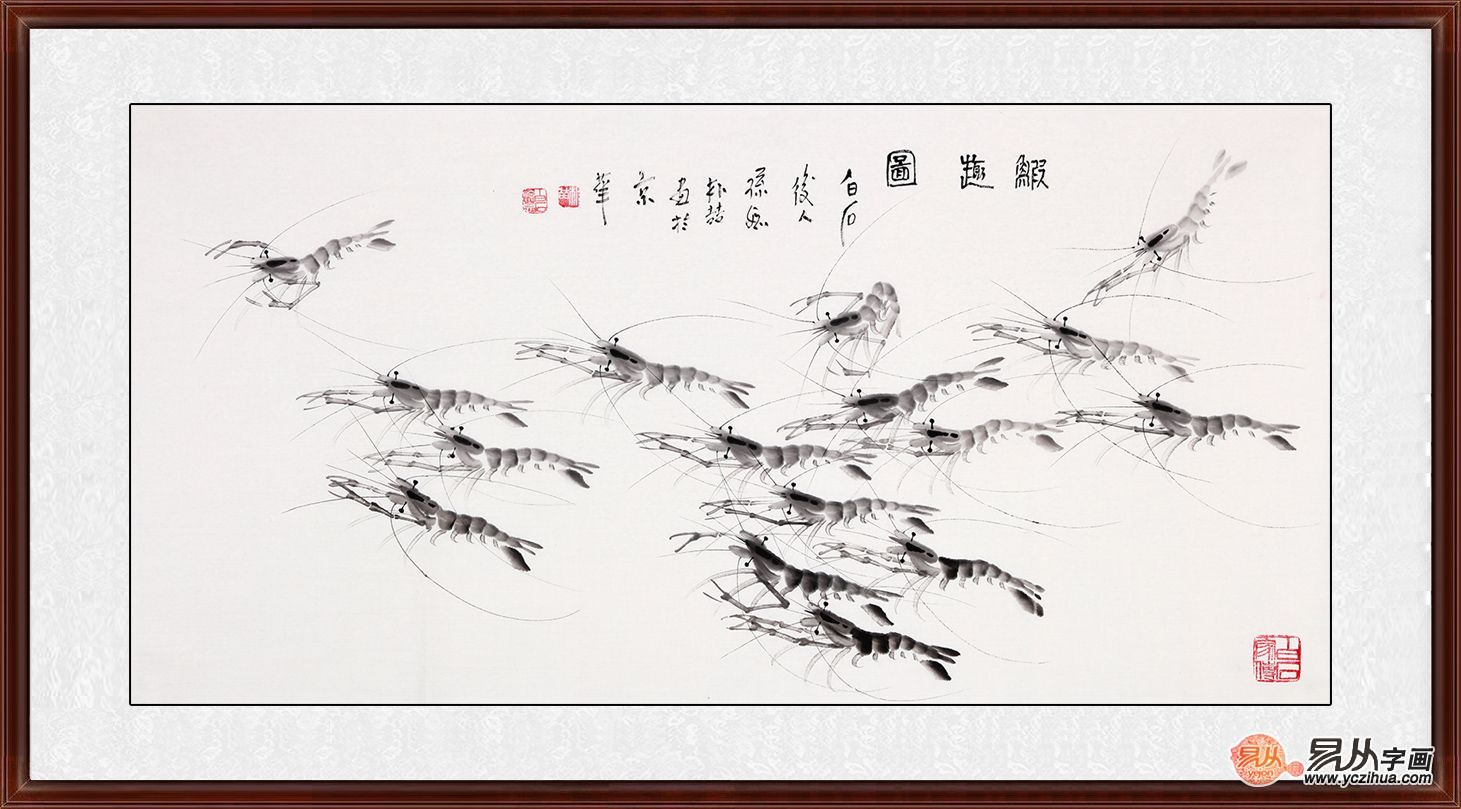 鰕趣圖
白石
後人
孫
畫於
京
華
白石家傳
易从
易从字画
www.yczihua.com